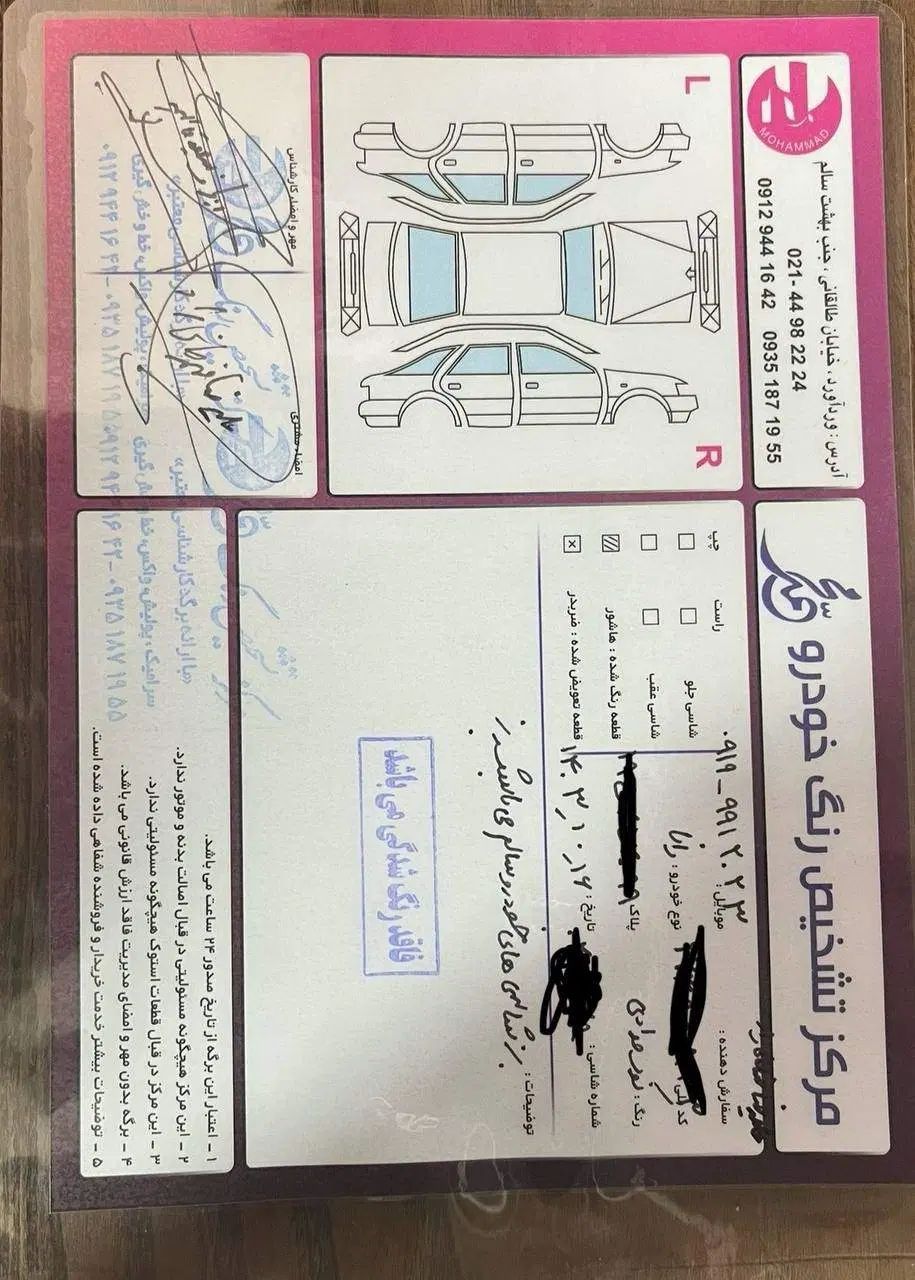 MOHAMMAD
آدرس : وردآورد ، خیابان طالقانی ، جنب بهشت سالم
021- 44 98 22 24
0912 944 16 42 0935 187 19 55
مرکز تشخیص رنگ خودرو محمد
L
R
چپ
راست
شاسی جلو
شاسی عقب
قطعه رنگ شده : هاشور
قطعه تعویض شده : ضربدر
سفارش دهنده :
موبایل : ۰۹۱۹-۹۹۱۲۰۲۳
کد ملی
نوع خودرو : رانا
رنگ :
پلاک
شماره شاسی :
تاریخ : ۱۴۰۳_۱۰_۱۶
توضیحات :
شاسی های خودرو سالم می باشد
فاقد رنگ شدگی می باشد
مهر و امضاء کارشناس
امضاء مشتری
«با ارائه برگه کارشناسی معتبر»
سرامیک، پولیش، واکس، خط و خش گیری
۰۹۱۲۹۴۴۱۶۴۲-۰۹۳۵۱۸۷۱۹۵۵
۱ - اعتبار این برگه از تاریخ صدور ۲۴ ساعت می باشد.
۲ - این مرکز هیچگونه مسئولیتی در قبال اصالت بدنه و موتور ندارد.
۳ - این مرکز در قبال قطعات استوک هیچگونه مسئولیتی ندارد.
۴ - برگه بدون مهر و امضای مدیریت فاقد ارزش قانونی می باشد.
۵ - توضیحات بیشتر خدمت خریدار و فروشنده شفاهی داده شده است.